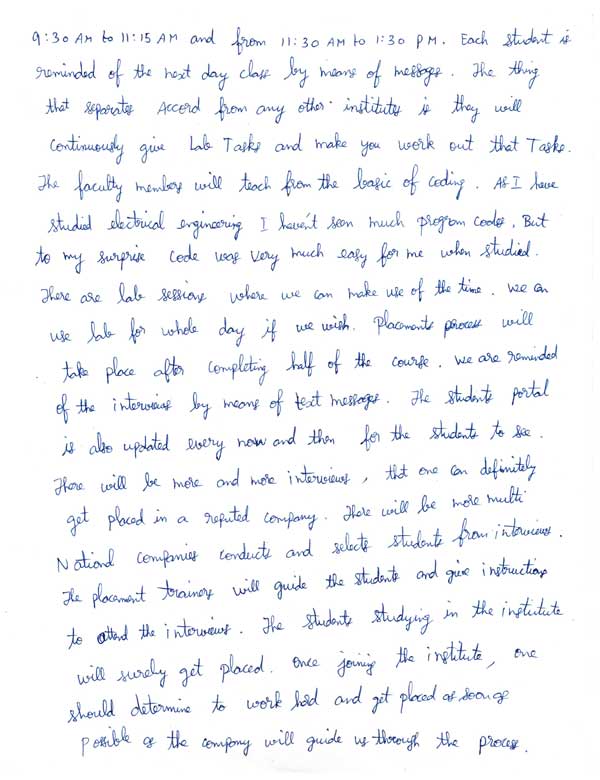 9:30 AM to 11:15 AM and from 11:30 AM to 1:30 PM. Each student is
reminded of the next day class by means of messages. The thing
that separates Accord from any other institutes is they will
continuously give Lab Tasks and make you work out that Tasks.
The faculty members will teach from the basic of coding. As I have
studied electrical engineering I haven't seen much program codes. But
to my surprise code was very much easy for me when studied.
There are lab sessions where we can make use of the time. We can
use lab for whole day if we wish. Placements process will
take place after completing half of the course. We are reminded
of the interviews by means of text messages. The students portal
is also updated every now and then for the students to see.
There will be more and more interviews, that one can definitely
get placed in a reputed company. There will be more multi
National companies conducts and selects students from interviews.
The placement trainers will guide the students and give instructions
to attend the interviews. The students studying in the institute
will surely get placed. Once joining the institute, one
should determine to work hard and get placed as soon as
possible as the company will guide us through the process.